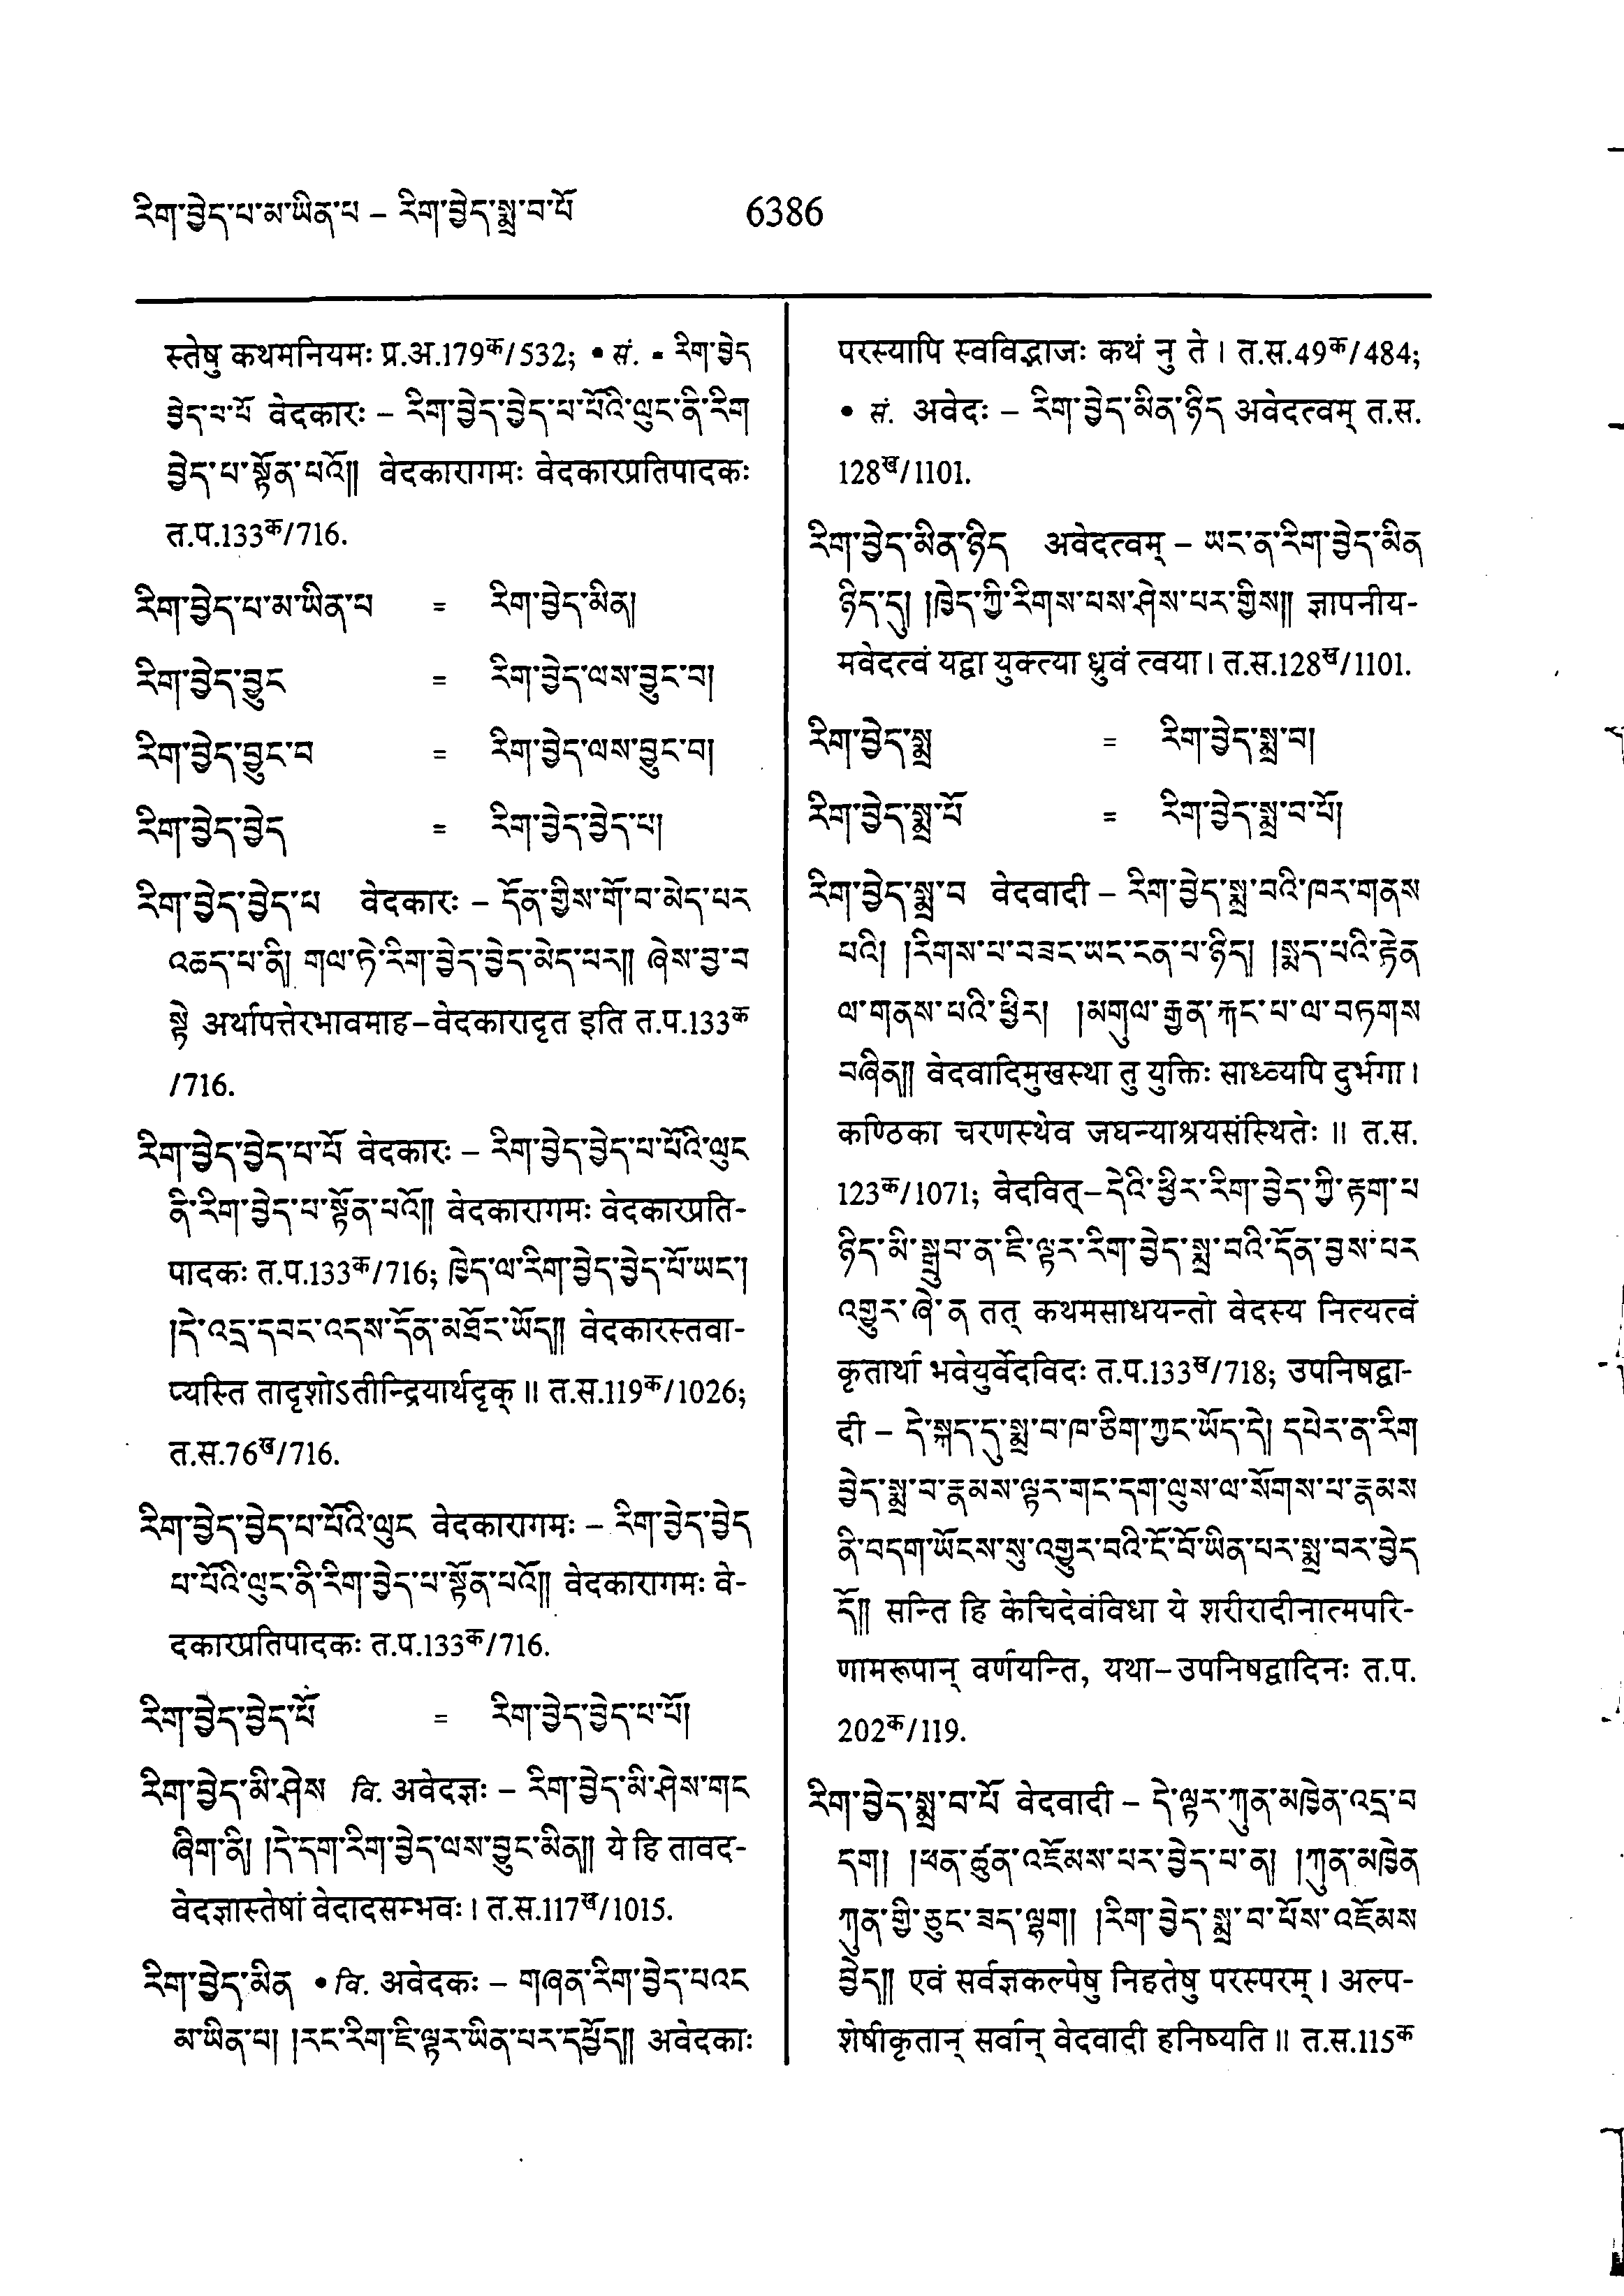 རིག་བྱེད་པ་མ་ཡིན་པ – རིག་བྱེད་སྨྲ་བ་པོ
6386
स्तेषु कथमनियमः प्र.अ.179क/532; • सं. ▪ རིག་བྱེད
བྱེད་པ་པོ वेदकारः – རིག་བྱེད་བྱེད་པ་པོའི་ལུང་ནི་རིག
བྱེད་པ་སྟོན་པའོ།། वेदकारागमः वेदकारप्रतिपादकः
त.प.133क/716.
རིག་བྱེད་པ་མ་ཡིན་པ = རིག་བྱེད་མིན།
རིག་བྱེད་བྱུང = རིག་བྱེད་ལས་བྱུང་བ།
རིག་བྱེད་བྱུང་བ = རིག་བྱེད་ལས་བྱུང་བ།
རིག་བྱེད་བྱེད = རིག་བྱེད་བྱེད་པ།
རིག་བྱེད་བྱེད་པ वेदकारः – དོན་གྱིས་གོ་བ་མེད་པར
འཆད་པ་ནི། གལ་ཏེ་རིག་བྱེད་བྱེད་མེད་པར།། ཞེས་བྱ་བ
སྟེ अर्थापत्तेरभावमाह–वेदकारादृत इति त.प.133क
/716.
རིག་བྱེད་བྱེད་པ་པོ वेदकारः – རིག་བྱེད་བྱེད་པ་པོའི་ལུང
ནི་རིག་བྱེད་པ་སྟོན་པའོ།། वेदकारागमः वेदकारप्रति-
पादकः त.प.133क/716; ཁྱེད་ལ་རིག་བྱེད་བྱེད་པོ་ཡང་།
།དེ་འདྲ་དབང་འདས་དོན་མཐོང་ཡོད།། वेदकारस्तवा-
प्यस्ति तादृशोऽतीन्द्रियार्थदृक् ॥ त.स.119क/1026;
त.स.76ख/716.
རིག་བྱེད་བྱེད་པ་པོའི་ལུང वेदकारागमः – རིག་བྱེད་བྱེད
པ་པོའི་ལུང་ནི་རིག་བྱེད་པ་སྟོན་པའོ།། वेदकारागमः वे-
दकारप्रतिपादकः त.प.133क/716.
རིག་བྱེད་བྱེད་པོ = རིག་བྱེད་བྱེད་པ་པོ།
རིག་བྱེད་མི་ཤེས वि. अवेदज्ञः – རིག་བྱེད་མི་ཤེས་གང
ཞིག་ནི། །དེ་དག་རིག་བྱེད་ལས་བྱུང་མིན།། ये हि तावद-
वेदज्ञास्तेषां वेदादसम्भवः । त.स.117ख/1015.
རིག་བྱེད་མིན • वि. अवेदकः – གཞན་རིག་བྱེད་པའང
མ་ཡིན་པ། །རང་རིག་ཇི་ལྟར་ཡིན་པར་དཔྱོད།། अवेदकाः
परस्यापि स्वविद्भाजः कथं नु ते । त.स.49क/484;
• सं. अवेदः – རིག་བྱེད་མིན་ཉིད अवेदत्वम् त.स.
128ख/1101.
རིག་བྱེད་མིན་ཉིད अवेदत्वम् – ཡང་ན་རིག་བྱེད་མིན
ཉིད་དུ། །ཁྱེད་ཀྱི་རིགས་པས་ཤེས་པར་གྱིས།། ज्ञापनीय-
मवेदत्वं यद्वा युक्त्या ध्रुवं त्वया । त.स.128ख/1101.
རིག་བྱེད་སྨྲ = རིག་བྱེད་སྨྲ་བ།
རིག་བྱེད་སྨྲ་པོ = རིག་བྱེད་སྨྲ་བ་པོ།
རིག་བྱེད་སྨྲ་བ वेदवादी – རིག་བྱེད་སྨྲ་བའི་ཁར་གནས
པའི། །རིགས་པ་བཟང་ཡང་ངན་པ་ཉིད། །སྨད་པའི་རྟེན
ལ་གནས་པའི་ཕྱིར། །མགུལ་རྒྱན་རྐང་པ་ལ་བཏགས
བཞིན།། वेदवादिमुखस्था तु युक्तिः साध्व्यपि दुर्भगा ।
कण्ठिका चरणस्थेव जघन्याश्रयसंस्थितेः ॥ त.स.
123क/1071; वेदवित्–དེའི་ཕྱིར་རིག་བྱེད་ཀྱི་རྟག་པ
ཉིད་མི་སྒྲུབ་ན་ཇི་ལྟར་རིག་བྱེད་སྨྲ་བའི་དོན་བྱས་པར
འགྱུར་ཞེ་ན तत् कथमसाधयन्तो वेदस्य नित्यत्वं
कृतार्था भवेयुर्वेदविदः त.प.133ख/718; उपनिषद्वा-
दी – དེ་སྐད་དུ་སྨྲ་བ་ཁ་ཅིག་ཀྱང་ཡོད་དེ། དཔེར་ན་རིག
བྱེད་སྨྲ་བ་རྣམས་ལྟར་གང་དག་ལུས་ལ་སོགས་པ་རྣམས
ནི་བདག་ཡོངས་སུ་འགྱུར་བའི་ངོ་བོ་ཡིན་པར་སྨྲ་བར་བྱེད
དོ།། सन्ति हि केचिदेवंविधा ये शरीरादीनात्मपरि-
णामरूपान् वर्णयन्ति, यथा–उपनिषद्वादिनः त.प.
202क/119.
རིག་བྱེད་སྨྲ་བ་པོ वेदवादी – དེ་ལྟར་ཀུན་མཁྱེན་འདྲ་བ
དག། །ཕན་ཚུན་འཇོམས་པར་བྱེད་པ་ན། །ཀུན་མཁྱེན
ཀུན་གྱི་ཅུང་ཟད་ལྷག། །རིག་བྱེད་སྨྲ་བ་པོས་འཇོམས
བྱེད།། एवं सर्वज्ञकल्पेषु निहतेषु परस्परम् । अल्प-
शेषीकृतान् सर्वान् वेदवादी हनिष्यति ॥ त.स.115क